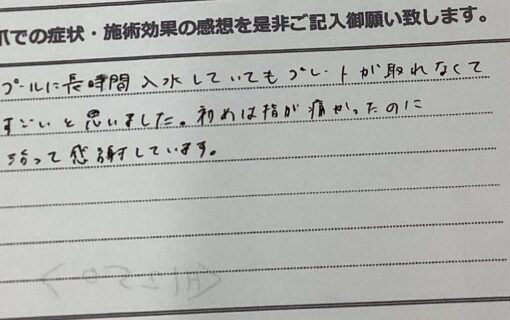 爪での症状・施術効果の感想を是非ご記入御願い致します。
プールに長時間入水していてもプレートが取れなくて
すごいと思いました。初めは指が痛かったのに
治って感謝しています。